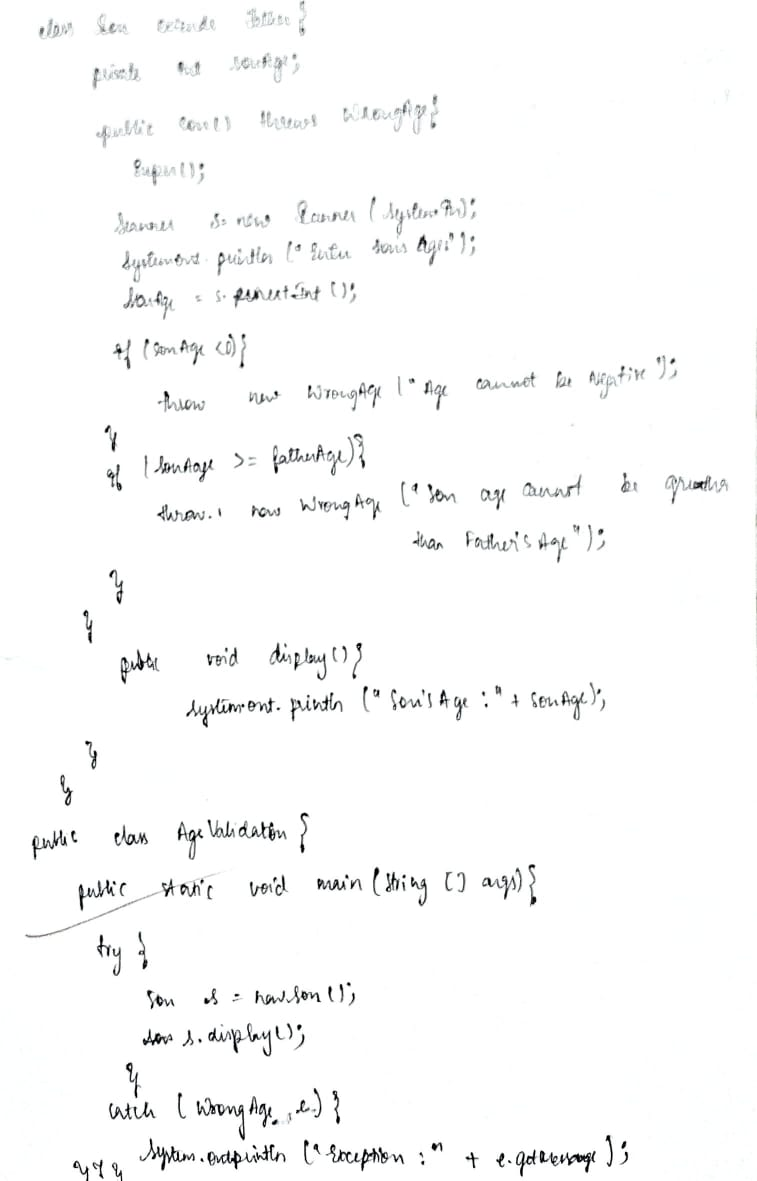 class Son extends Father {
private int sonAge;
public Son() throws WrongAge{
Super();
Scanner s= new Scanner (System.In);
System.out.println ("Enter son's Age:");
SonAge = s.nextInt ();
if (SonAge <0){
throw new WrongAge ("Age cannot be Negative");
}
if (SonAge >= fatherAge){
throw new WrongAge ("Son age cannot be greater
than Father's Age");
}
}
public void display(){
System.out.println ("Son's Age :" + SonAge);
}
}
public class Age Validation {
public static void main (String [] args){
try {
Son s = new Son ();
s.display();
}
catch (Wrong Age e) {
System.out.println ("Exception :" + e.getMessage);
} } }